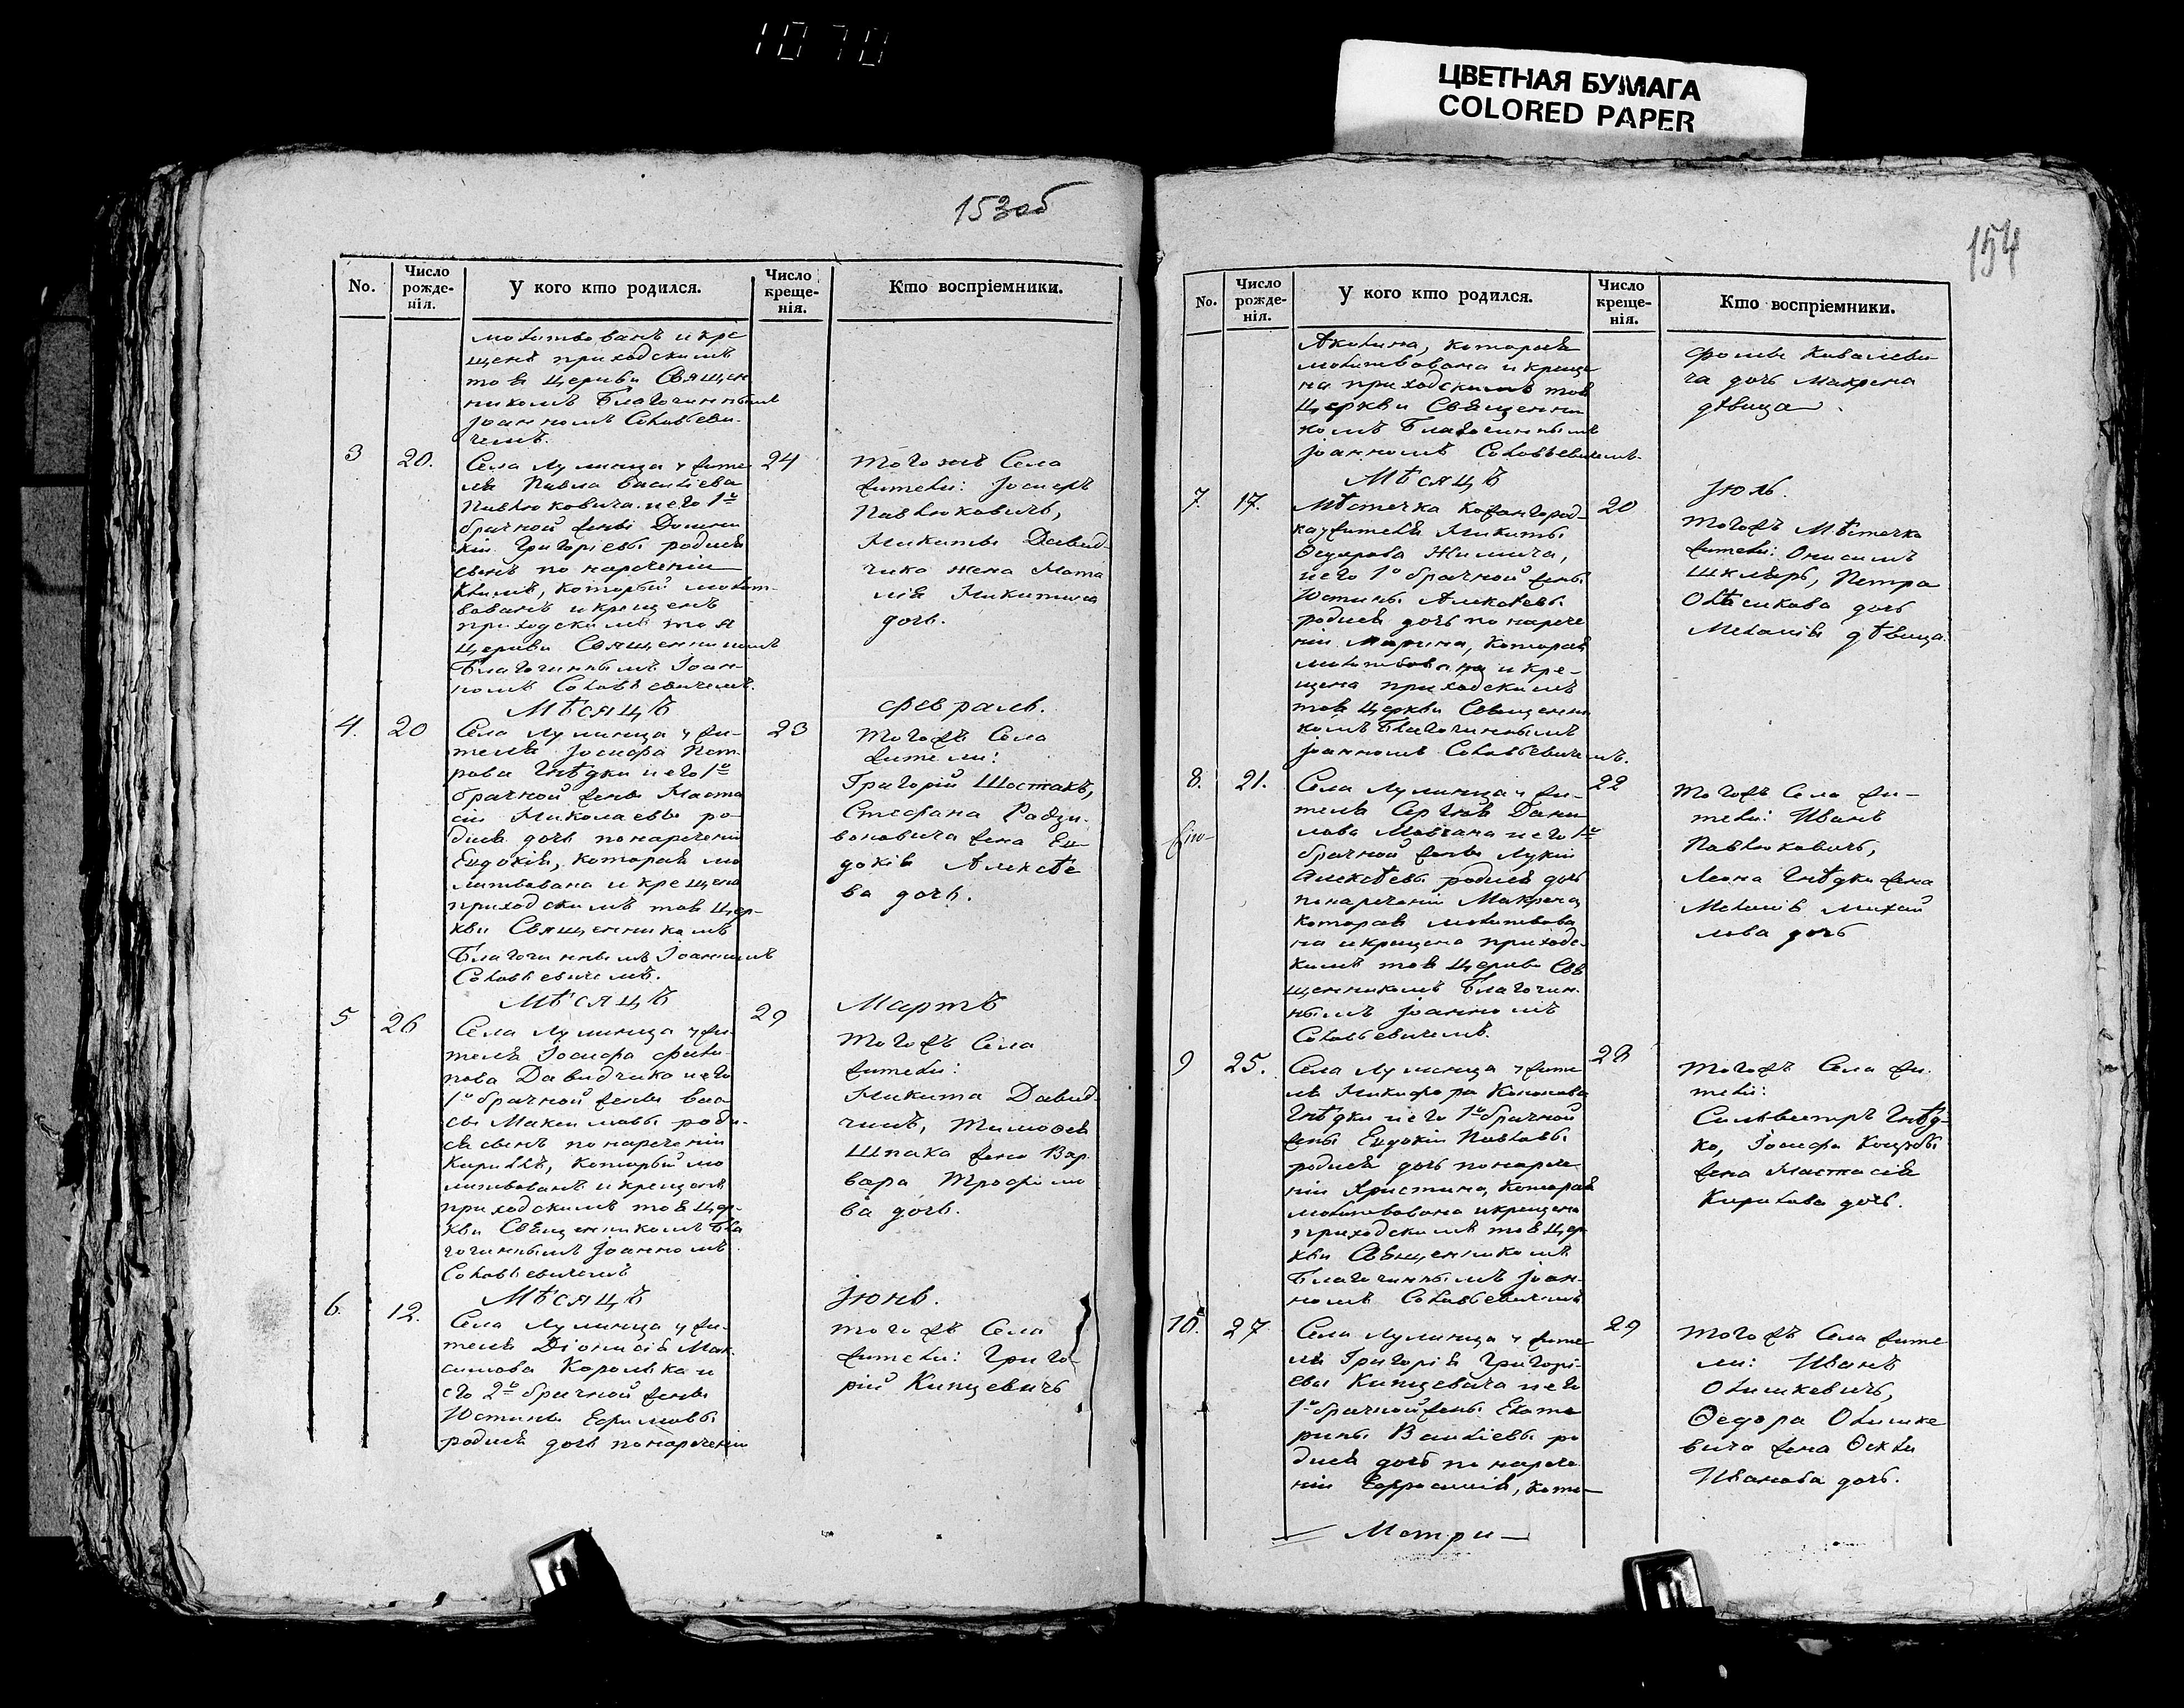 1070
ЦВЕТНАЯ БУМАГА
COLORED PAPER
153об
No.
Число рожде-нія.
У кого кто родился.
Число креще-нія.
Кто воспріемники.
молитвованъ и кре
щенъ приходскимъ
тоя церкви Священ
никомъ Благочиннымъ
Іоанномъ Соловьеви-
чемъ.
3 20. 24
Села Лулинца у жите
ля Павла Василіева
Павлюковича и его 1й
брачной жены Домни
кіи Григоріевы родился
сынъ по нареченіи
который молит-
вованъ и крещенъ
приходскимъ тоя
церкви Священникомъ
Благочиннымъ Іоан-
номъ Соловьевичемъ.
тогожъ Села
жители: Іосифъ
Павлюковичъ,
Никиты Давид-
чика жена Ната
лія Никитина
дочь.
Мѣсяцъ
февраль.
4. 20 23
Села Лулинца у жи-
теля Іосифа Пет
рова Гнѣдки и его 1й
брачной жены Наста
сіи Николаевы ро-
дися дочь по нареченіи
Евдокія, которая мо
литвована и крещена
приходскимъ тоя Цер-
кви Священникомъ
Благочиннымъ Іоанномъ
Соловьевичемъ.
тогожъ Села
жители:
Григорій Шостакъ,
Стефана Радзи-
воновича жена Ев-
докія Алексѣе
ва дочь.
Мѣсяцъ
Мартъ
5 26 29
Села Лулинца у жи-
теля Іосифа Фили-
пова Давидчика и его
1й брачной жены Васс
сы Максимовы роди-
ся сынъ по нареченіи
Кириллъ, который мо
литвованъ и крещенъ
приходскимъ тоя Цер-
кви Священникомъ Бла
гочиннымъ Іоанномъ
Соловьевичемъ
тогожъ Села
жители:
Никита Давид-
чикъ, Тимофея
Шпака жена Вар
вара Трофимо
ва дочь.
Мѣсяцъ
Іюнь.
6. 12.
Села Лулинца у жи-
теля Діонисія Мак
симова Королька и
его 2й брачной жены
Юстины Ефимовы
родися дочь по нареченіи
тогожъ Села
жители: Григо-
рій Кипцевичъ
154
No.
Число рожде-нія.
У кого кто родился.
Число креще-нія.
Кто воспріемники.
Акилина, которая
молитвована и креще
на приходскимъ тоя
Церкви Священни
комъ Благочиннымъ
Іоанномъ Соловьевичемъ.
Фомы Ковалеви
ча дочь Макрена
дѣвица.
Мѣсяцъ
Іюль.
7. 17. 20
Мѣстечка Кожангород-
ка у жителя Никиты
Федорова Жилича,
и его 1й брачной жены
Юстины Алексѣевы
родися дочь по нарече
ніи Марина, которая
молитвована и кре-
щена приходскимъ
тоя Церкви Священни
комъ Благочиннымъ
Іоанномъ Соловьевичемъ.
тогожъ Мѣстечка
жители: Онисимъ
Шкляръ, Петра
дочь
Меланія дѣвица.
8. 21. 22
Села Лулинца у жи-
теля Сергія Дани
лова Мовчана и его 1й
брачной жены Лукіи
Алексѣевы родися дочь
по нареченіи Макрена
которая молитвова
на и крещена приходс-
кимъ тоя Церкви Свя
щенникомъ Благочин-
нымъ Іоанномъ
Соловьевичемъ.
тогожъ Села жи-
тели: Иванъ
Павлюковичъ,
Леона Гнѣдки жена
Меланія Михай
лова дочь
9 25. 28
Села Лулинца у жите
ля Никифора Кононова
Гнѣдки и его 1й брачной
жены Евдокіи Павловы
родися дочь по нарече-
ніи Христина, которая
молитвована и крещена
приходскимъ тоя Цер
кви Священникомъ
Благочиннымъ Іоан-
номъ Соловьевичемъ
тогожъ Села жи-
тели:
Сильвестръ Гнѣд-
ко, Іосифа
жена Настасія
Кирилова дочь.
10. 27 29
Села Лулинца у жите
ля Григорія Григорі-
евы Кипцевича и его
1й брачной жены Екате
рины Василіевы ро
дися дочь по нарече
ніи Евфросинія, кото-
тогожъ Села жите
ли: Иванъ
Олишкевичъ,
Федора Олишке
вича жена Фекла
Иванова дочь.
Метри